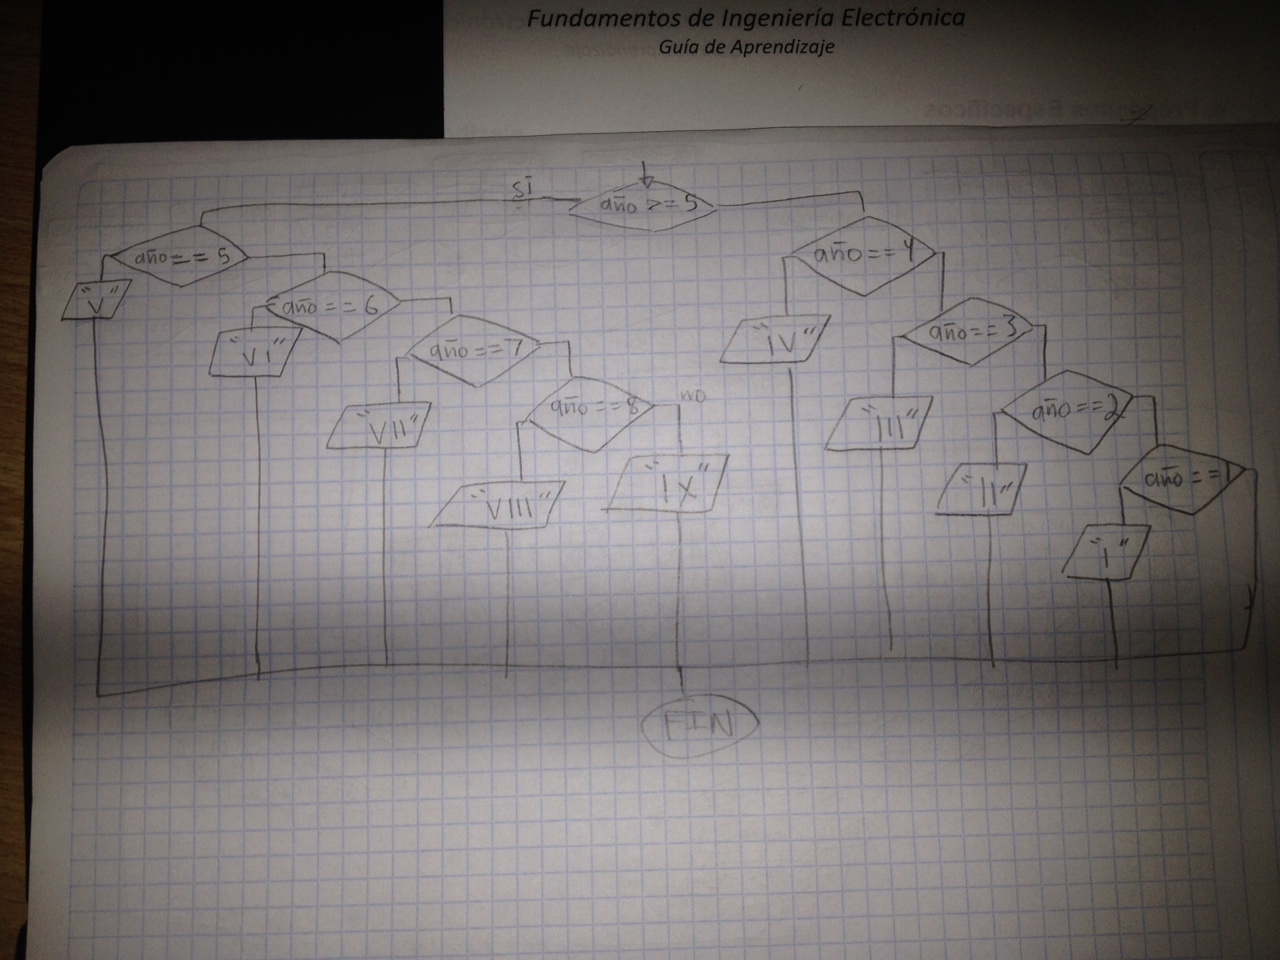 Fundamentos de Ingeniería Electrónica
Guía de Aprendizaje
año >= 5
SI
año == 5
"V"
año == 6
"VI"
año == 7
"VII"
año == 8
"VIII"
no
"IX"
año == 4
"IV"
año == 3
"III"
año == 2
"II"
año == 1
"I"
FIN